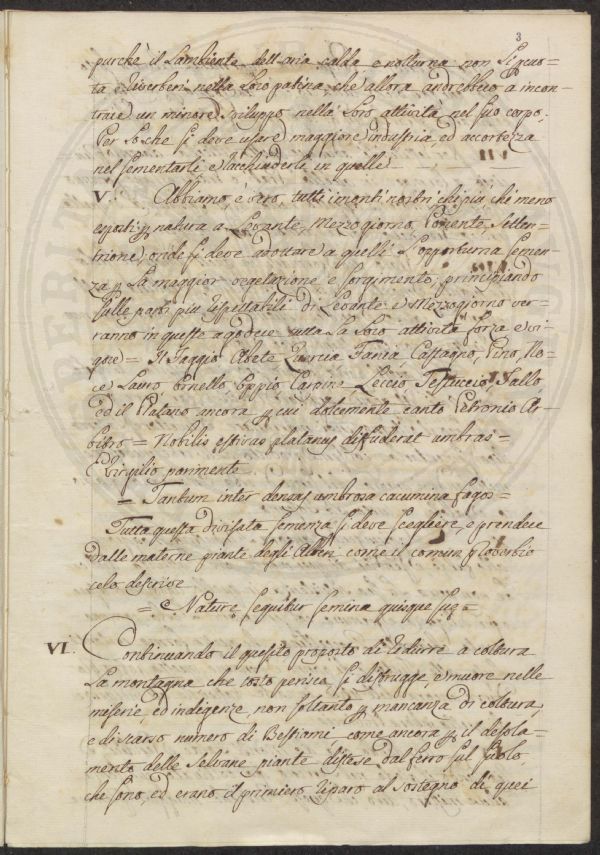 3
purchè il Lambiente dell'aria calda e notturna non si qcuo=
ta e riverberi nella loro patina che allora andrebbero a incon=
trare un minore sviluppo nella loro attività nel suo corpo.
Per loche si deve usare maggiore industria ed accortezza
nel sementarli e rachiuderli in quelle
V. Abbiamo, è vero, tutti i monti nostri chi più, chi meno
esposti p natura a Levante, Mezzogiorno, Ponente, Setten=
trione, onde si deve adottare a quelli l'opportuna semen=
za p la maggior vegetazione e sorgimento, principiando
sulle parti piu rispettabili di Levante e Mezzogiorno ver=
ranno in queste a godere tutta la loro attività forza e vi=
gore = Il Faggio Abete Quercia Farnia Castagno, Pino, No=
ce Lauro Ornello, Oppio Carpine, Leccio Testuccio, Tallo,
ed il Platano ancora p cui dolcemente cantò Petronio Ar=
bitro = Nobilis estivas platanus diffuderat umbras =
E Virgilio parimente
= Tantum inter densas umbrosa cacumina fagos =
Tutta questa divisata semenza si deve scegliere, e prendere
dalle materne piante degli Alberi come il comun Proverbio
celo descrive
= Nature sequitur semina quisque sue =
VI. Continuando il quesito proposto di ridurre a coltura
la montagna che tosto perisce si distrugge, e muore nelle
miserie, ed indigenze, non soltanto p mancanza di coltura,
e di scarso numero di Bestiami come ancora p il desola=
mento delle Selvane piante distese dal ferro sul suolo,
che sono, ed erano il primiero riparo al sostegno di quei